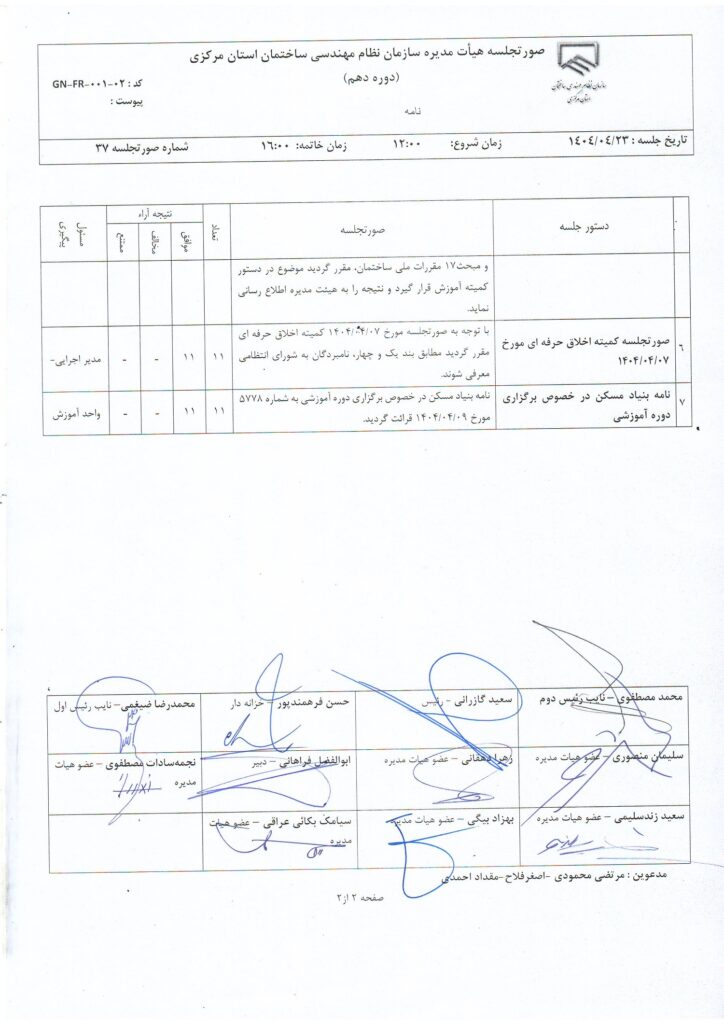 صورتجلسه هیأت مدیره سازمان نظام مهندسی ساختمان استان مرکزی
(دوره دهم)
نامه
سازمان نظام مهندسی ساختمان
استان مرکزی
کد : GN-FR-۰۰۱-۰۲
پیوست :
تاریخ جلسه : ۱۴۰۴/۰۴/۲۳ زمان شروع: ۱۲:۰۰ زمان خاتمه: ۱۶:۰۰ شماره صورتجلسه ۳۷
دستور جلسه
صورتجلسه
تعداد
نتیجه آراء
موافق
مخالف
ممتنع
مسئول پیگیری
و مبحث۱۷ مقررات ملی ساختمان، مقرر گردید موضوع در دستور
کمیته آموزش قرار گیرد و نتیجه را به هیئت مدیره اطلاع رسانی
نماید.
۶
صورتجلسه کمیته اخلاق حرفه ای مورخ
۱۴۰۴/۰۴/۰۷
با توجه به صورتجلسه مورخ ۱۴۰۴/۰۴/۰۷ کمیته اخلاق حرفه ای
مقرر گردید مطابق بند یک و چهار، نامبردگان به شورای انتظامی
معرفی شوند.
۱۱ ۱۱ - - مدیر اجرایی-
۷
نامه بنیاد مسکن در خصوص برگزاری
دوره آموزشی
نامه بنیاد مسکن در خصوص برگزاری دوره آموزشی به شماره ۵۷۷۸
مورخ ۱۴۰۴/۰۴/۰۹ قرائت گردید.
۱۱ ۱۱ - - واحد آموزش
محمد مصطفوی – نایب رئیس دوم
سعید گازرانی - رئیس
حسن فرهمندپور – خزانه دار
محمدرضا ضیغمی – نایب رئیس اول
سلیمان منصوری – عضو هیات مدیره
زهرا دهقانی – عضو هیات مدیره
ابوالفضل فراهانی – دبیر
نجمه‌سادات مصطفوی – عضو هیات
مدیره
سعید زندسلیمی – عضو هیات مدیره
بهزاد بیگی – عضو هیات مدیره
سیامک بکائی عراقی – عضو هیات
مدیره
مدعوین : مرتضی محمودی -اصغرفلاح-مقداد احمدی
صفحه ۲ از۲